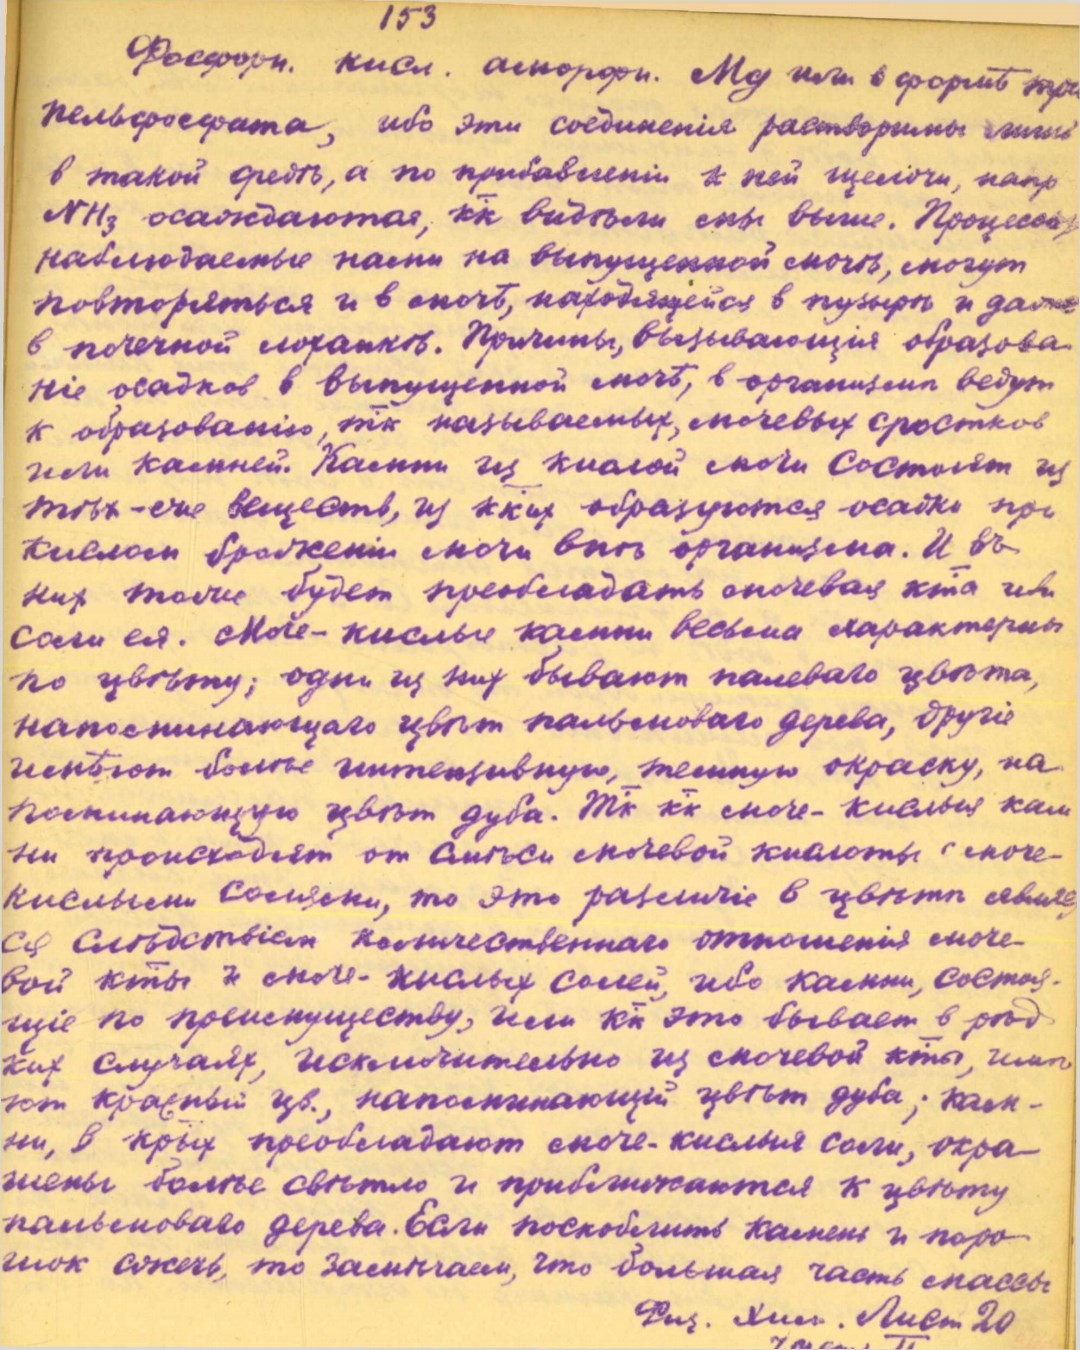 153
Фосфорн. кисл. аморфн. Mg или в формѣ три
пельфосфата, ибо эти соединенія растворимы лишь
в такой средѣ, а по прибавленіи к ней щелочи, напр
NH3 осаждаются, кк видѣли мы выше. Процессы,
наблюдаемые нами на выпущенной мочѣ, могут
повторяться и в мочѣ, находящейся в пузырѣ и даже
в почечной лоханкѣ. Причины, вызывающія образова-
ніе осадков в выпущенной мочѣ, в организмѣ ведут
к образованію, тк называемых, мочевых сростков
или камней. Камни из кислой мочи состоят из
тѣх-же веществ, из кких образуются осадки при
кислом броженіи мочи внѣ организма. И въ
них также будет преобладать мочевая кта или
соли ея. Моче-кислые камни весьма характерны
по цвѣту; одни из них бывают палеваго цвѣта,
напоминающаго цвѣт пальмоваго дерева, другіе
имѣют болѣе интензивную, темную окраску, на-
поминающую цвѣт дуба. Тк кк моче-кислыя кам
ни происходят от смѣси мочевой кислоты с моче-
кислыми солями, то это различіе в цвѣтѣ являет
ся слѣдствіем количественнаго отношенія моче-
вой кты к моче-кислых солей, ибо камни, состоя-
щіе по преимуществу, или кк это бывает в рѣд
ких случаях, исключительно из мочевой кты, имѣ
ют красный цв., напоминающій цвѣт дуба; кам-
ни, в крых преобладают моче-кислыя соли, окра-
шены болѣе свѣтло и приближаются к цвѣту
пальмоваго дерева. Если поскоблить камень и поро
шок сжечь, то замѣчаем, что большая часть массы
Физ. Хим. Лист 20
Часть II